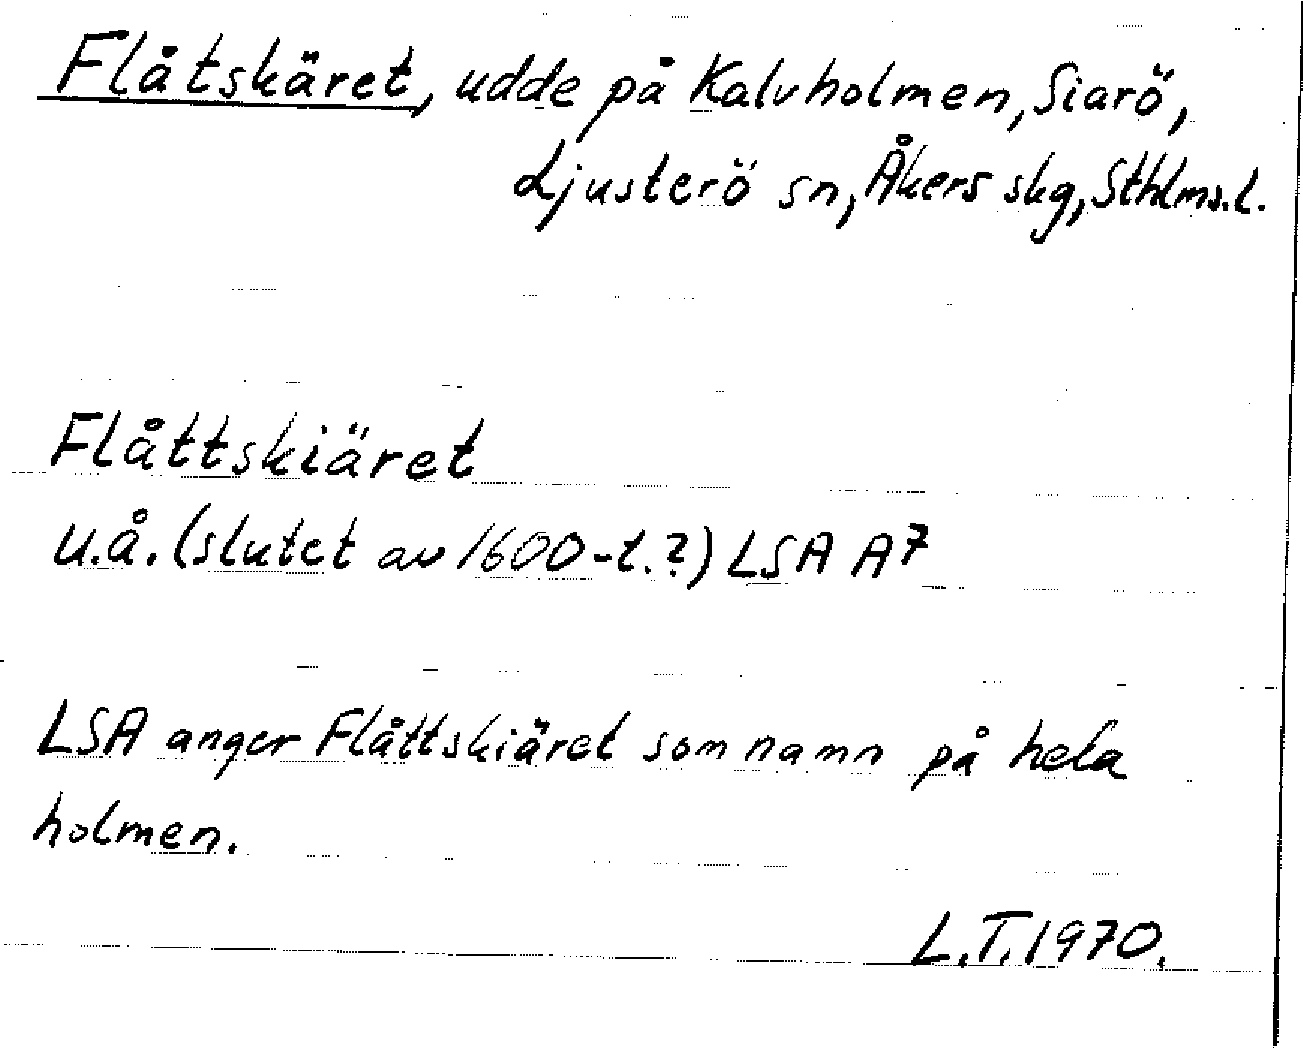 Flåtskäret, udde på Kalvholmen, Siarö,
Ljusterö sn, Åkers skg, Sthlms.l.
Flåttskiäret
u.å. (slutet av 1600-t.?) LSA A7
LSA anger Flåttskiäret som namn på hela
holmen.
L.T. 1970.